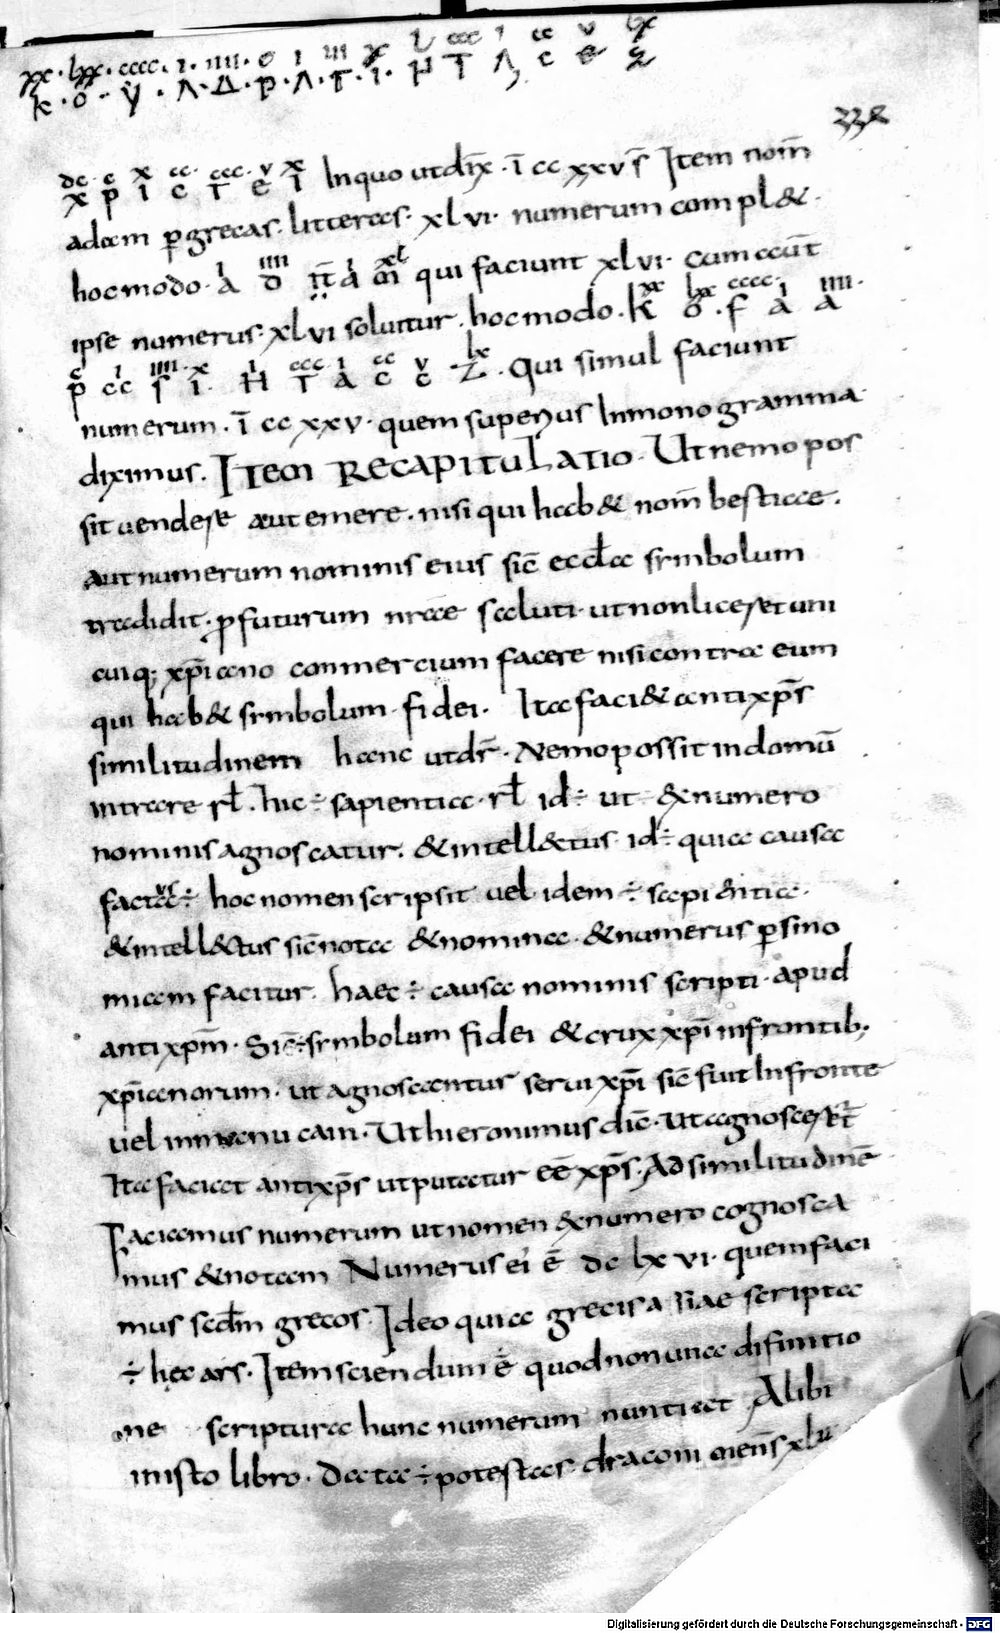 xx · lxx · cccc · i · iiii · c i iii x i ccc i cc v lx
k · o · y · λ · Δ · ρ · λ · Γ · ι · H T λ c e z
dc c x cc ccc v x
x p i c T e i Inquo utdix̄ · ī cc xxv s̄ Item nom̄
adam p̄ grecas litteras · xlvi · numerum compl&
i iiii i xl
hocmodo · a d̄ π̄ a m̄ qui faciunt xlvi · cum
ipse numerus · xlvi soluitur · hocmodo · k o · f a a
numerum · ī cc xxv · quem superius Inmonogramma
diximus. Item Recapitulatio · Ut nemo pos
sit uendere aut emere · nisi qui hab& nom̄ bestiae ·
aut numerum nominis eius sic̄ eccła simbolum
tradidit · p̄futurum nrāe saluti · ut non liceret uni
cuiq; xp̄iano commercium facere nisi contra eum
qui hab& simbolum fidei · Ita faci& antixp̄s
similitudinem hanc utdr̄ · Nemo possit indomū
intrare rł · hic ÷ sapientia · rł id ÷ ut &numero
nominis agnoscatur · &intell&tus id ÷ quae causa
facta ÷ hoc nomen scripsit uel idem ÷ sapientiae ·
&intell&tus sic̄ nota &nomina · &numerus p̄sino
miam facitur · haec ÷ causa nominis scripti · apud
antixp̄m · Sic̄ ÷ simbolum fidei &crux xp̄i infrontib;
xp̄ianorum · ut agnoscantur serui xp̄i sic̄ fuit Infronte
uel inmanu cain · Ut hieronimus dic̄ · Ut agnosceret̄
Ita faciet antixp̄s ut putetur eē xp̄s · Ad similitudinē
Faciamus numerum ut nomen &numero cognosca
mus &notam Numerus ei ē dc lx vi · quem faci
mus scdm̄ grecos · Ideo quia grecis a scripta
÷ hec ars · Item sciendum ē quod non una difinitio
ne scripturae hunc numerum nuntiet Alibi
inisto libro · Data ÷ potestas draconi mens̄ xlii